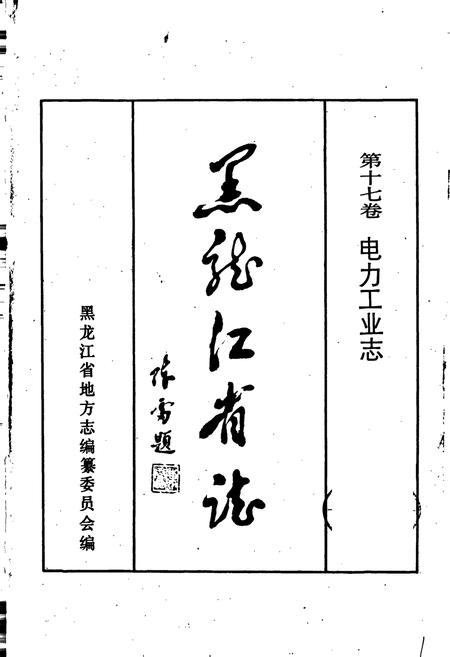 第十七卷 电力工业志
黑龙江省志
陈雷题
黑龙江省地方志编纂委员会编